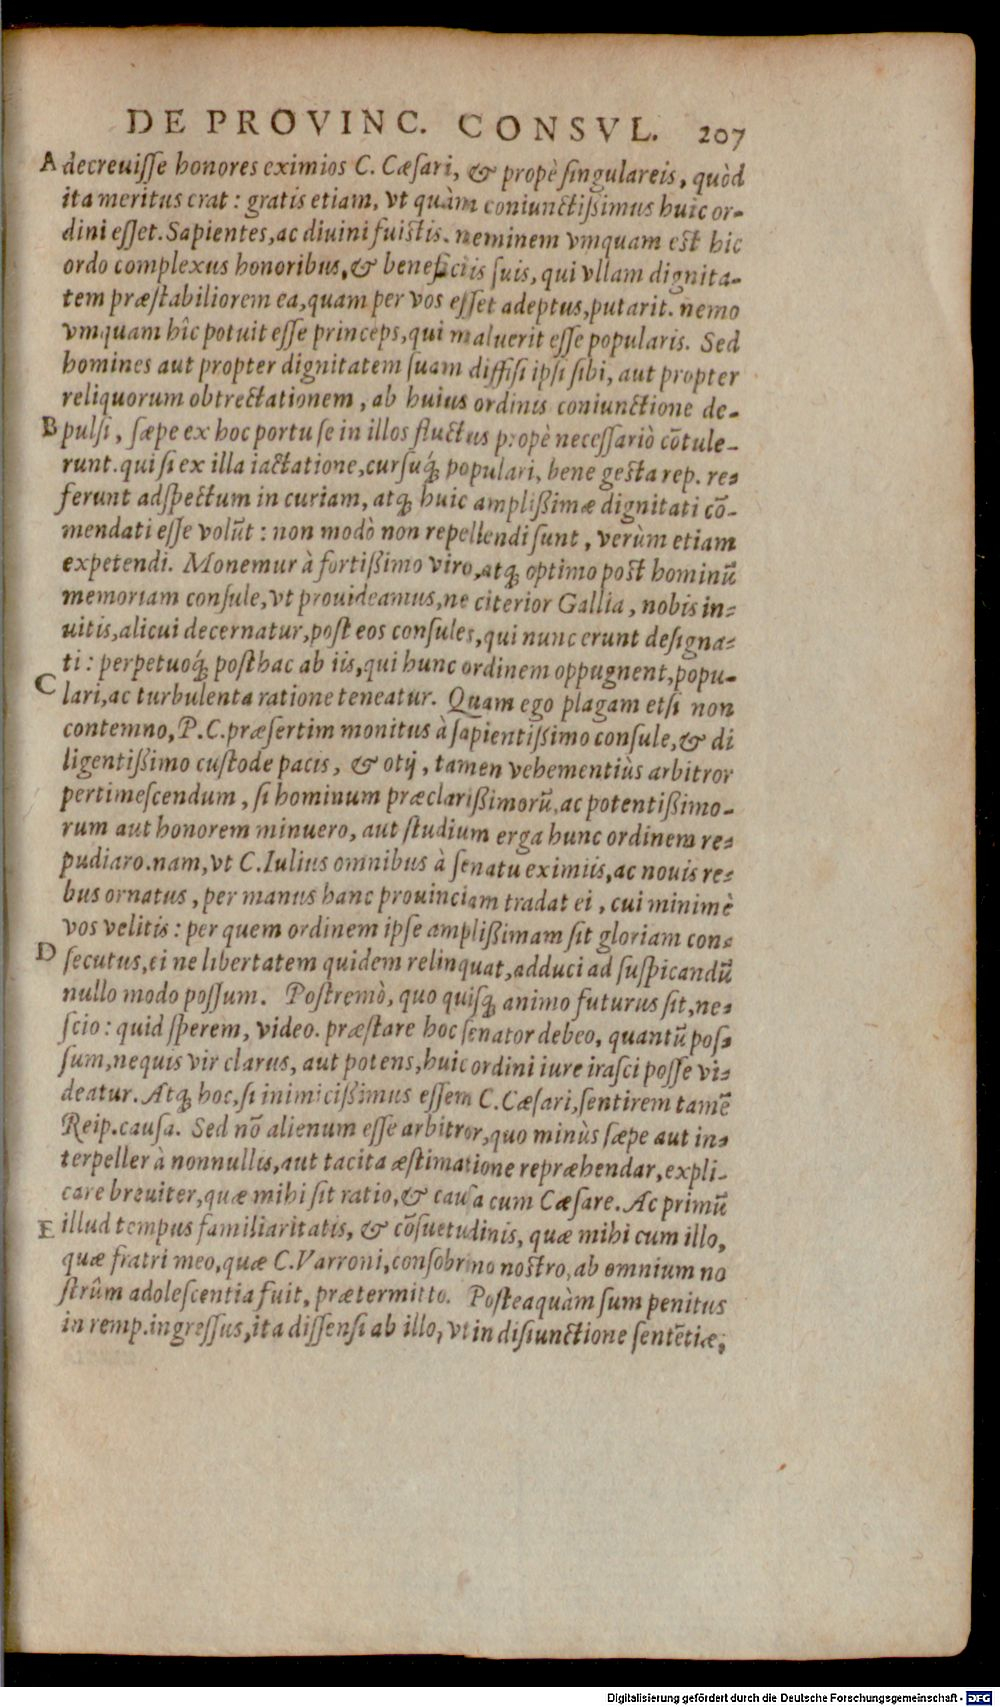 DE PROVINC. CONSVL. 207
A decreuisse honores eximios C. Cæsari, & propè singulareis, quòd
ita meritus erat: gratis etiam, vt quàm coniunctißimus huic or-
dini esset. Sapientes, ac diuini fuistis. neminem vmquam est hic
ordo complexus honoribus, & beneficiis suis, qui vllam dignita-
tem præstabiliorem ea, quam per vos esset adeptus, putarit. nemo
vmquam hîc potuit esse princeps, qui maluerit esse popularis. Sed
homines aut propter dignitatem suam diffisi ipsi sibi, aut propter
reliquorum obtrectationem, ab huius ordinis coniunctione de-
B pulsi, sæpe ex hoc portu se in illos fluctus propè necessariò cōtule-
runt. qui si ex illa iactatione, cursuq́; populari, bene gesta rep. re-
ferunt adspectum in curiam, atq; huic amplißimæ dignitati cō-
mendati esse volūt: non modò non repellendi sunt, verùm etiam
expetendi. Monemur à fortißimo viro, atq; optimo post hominū
memoriam consule, vt prouideamus, ne citerior Gallia, nobis in-
uitis, alicui decernatur, post eos consules, qui nunc erunt designa-
ti: perpetuoq́; posthac ab iis, qui hunc ordinem oppugnent, popu-
C lari, ac turbulenta ratione teneatur. Quam ego plagam etsi non
contemno, P.C. præsertim monitus à sapientißimo consule, & di
ligentißimo custode pacis, & otij, tamen vehementiùs arbitror
pertimescendum, si hominum præclarißimorū, ac potentißimo-
rum aut honorem minuero, aut studium erga hunc ordinem re-
pudiaro. nam, vt C. Iulius omnibus à senatu eximiis, ac nouis re-
bus ornatus, per manus hanc prouinciam tradat ei, cui minimè
vos velitis: per quem ordinem ipse amplißimam sit gloriam con-
D secutus, ei ne libertatem quidem relinquat, adduci ad suspicandū
nullo modo possum. Postremò, quo quisq; animo futurus sit, ne-
scio: quid sperem, video. præstare hoc senator debeo, quantū pos-
sum, nequis vir clarus, aut potens, huic ordini iure irasci posse vi-
deatur. Atq; hoc, si inimicißimus essem C. Cæsari, sentirem tamē
Reip. causa. Sed nō alienum esse arbitror, quo minùs sæpe aut in-
terpeller à nonnullis, aut tacita æstimatione repræhendar, expli-
care breuiter, quæ mihi sit ratio, & causa cum Cæsare. Ac primū
E illud tempus familiaritatis, & cōsuetudinis, quæ mihi cum illo,
quæ fratri meo, quæ C. Varroni, consobrino nostro, ab omnium no
strûm adolescentia fuit, prætermitto. Posteaquàm sum penitus
in remp. ingressus, ita dissensi ab illo, vt in disiunctione sentētiæ,
Digitalisierung gefördert durch die Deutsche Forschungsgemeinschaft - DFG